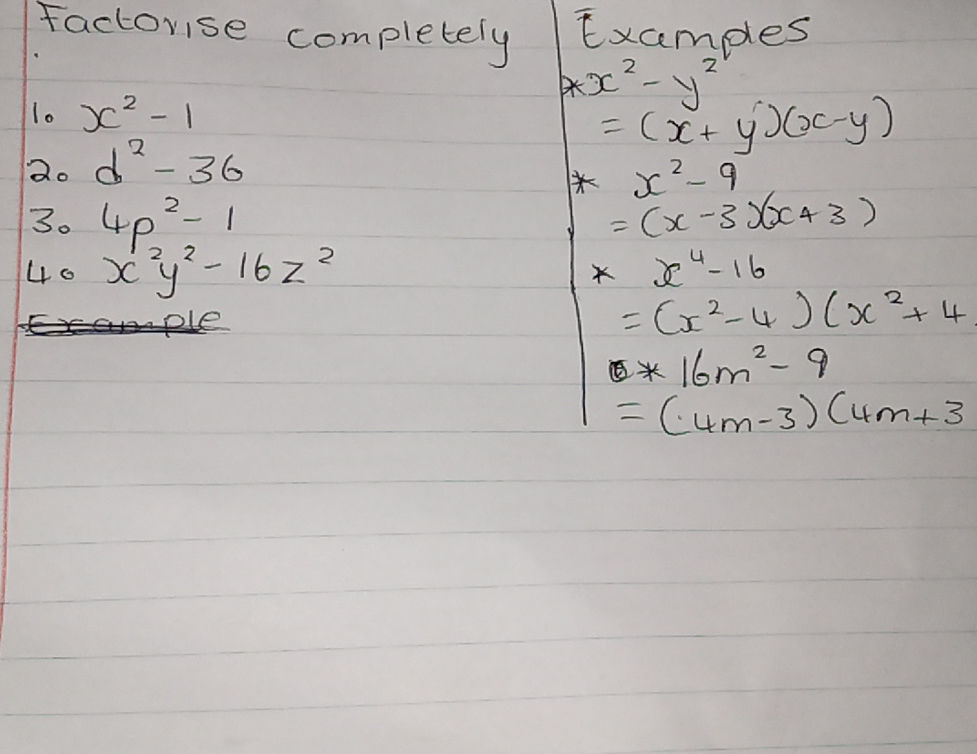 Factorise completely
1. x² - 1
2. d² - 36
3. 4p² - 1
4. x²y² - 16z²
Example
Examples
* x² - y²
= (x + y)(x - y)
* x² - 9
= (x - 3)(x + 3)
* x⁴ - 16
= (x² - 4)(x² + 4
* 16m² - 9
= (4m - 3)(4m + 3